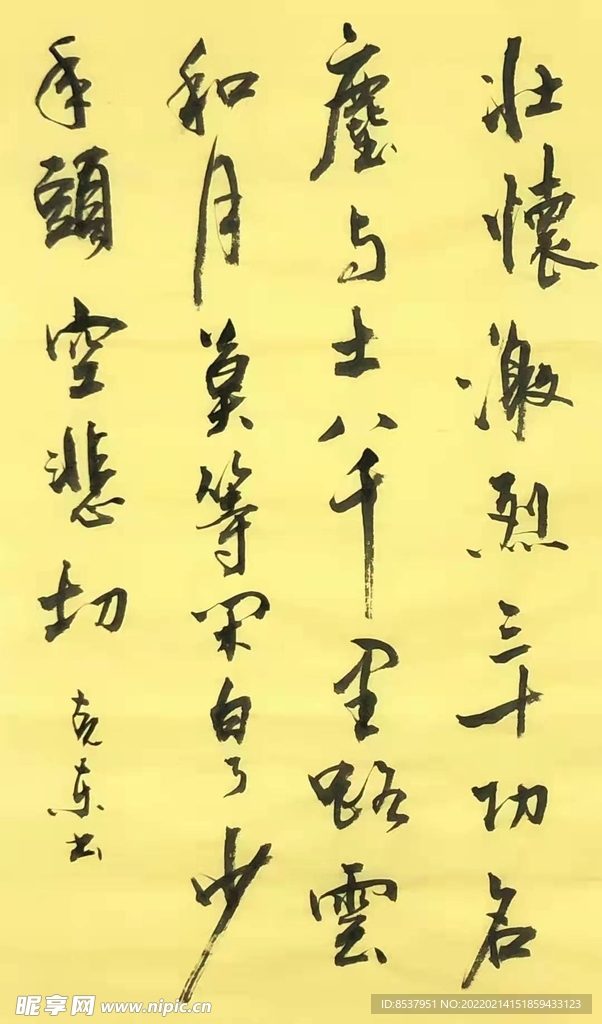 壯懷激烈三十功名
塵与土八千里路雲
和月莫等闲白了少
年頭空悲切
克东书
昵享网 www.nipic.cn
ID:8537951 NO:20220214151859433123